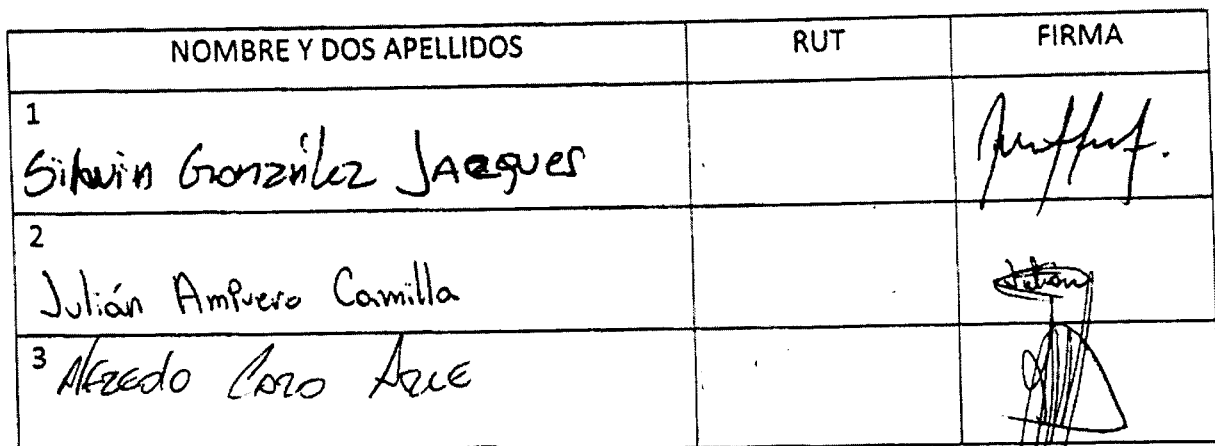 NOMBRE Y DOS APELLIDOS RUT FIRMA
1
González Jacques
2
Julián Ampuero Camilla
Julián
3 Alfredo Caro Arce